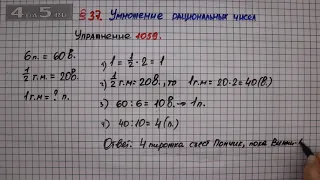 4 б 5.ru
§ 37. Умножение рациональных чисел
Упражнение 1059.
6 п. = 60 в.
½ г.м. = 20 в.
1 г.м = ? п.
1) 1 = ½ · 2 = 1
2) ½ г.м = 20 в., то 1 г.м = 20 · 2 = 40 (в)
3) 60 : 6 = 10 в. → 1 п.
4) 40 : 10 = 4 (п.)
Ответ: 4 пирожка съест Пончик, пока Винни